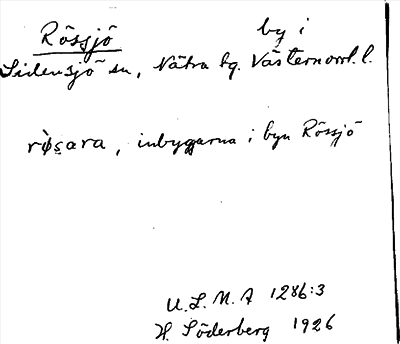 Rössjö by i
Sidensjö sn, Nätra tg. Västernorrl. l.
rø̀s̱ara, inbyggarna i byn Rössjö
U.L.M.A 1286:3
H. Söderberg 1926